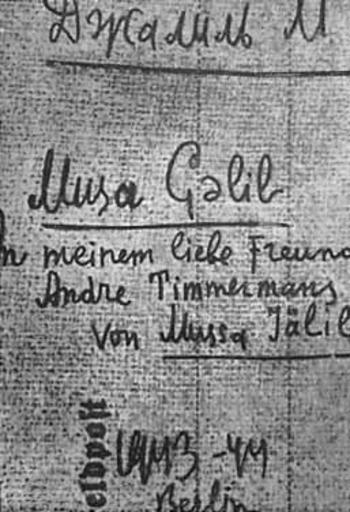 Джалиль М.
Musa Gəlil
An meinem liebe Freund
Andre Timmermans
von Mussa Jälil
eldpost
1943-44
Berlin